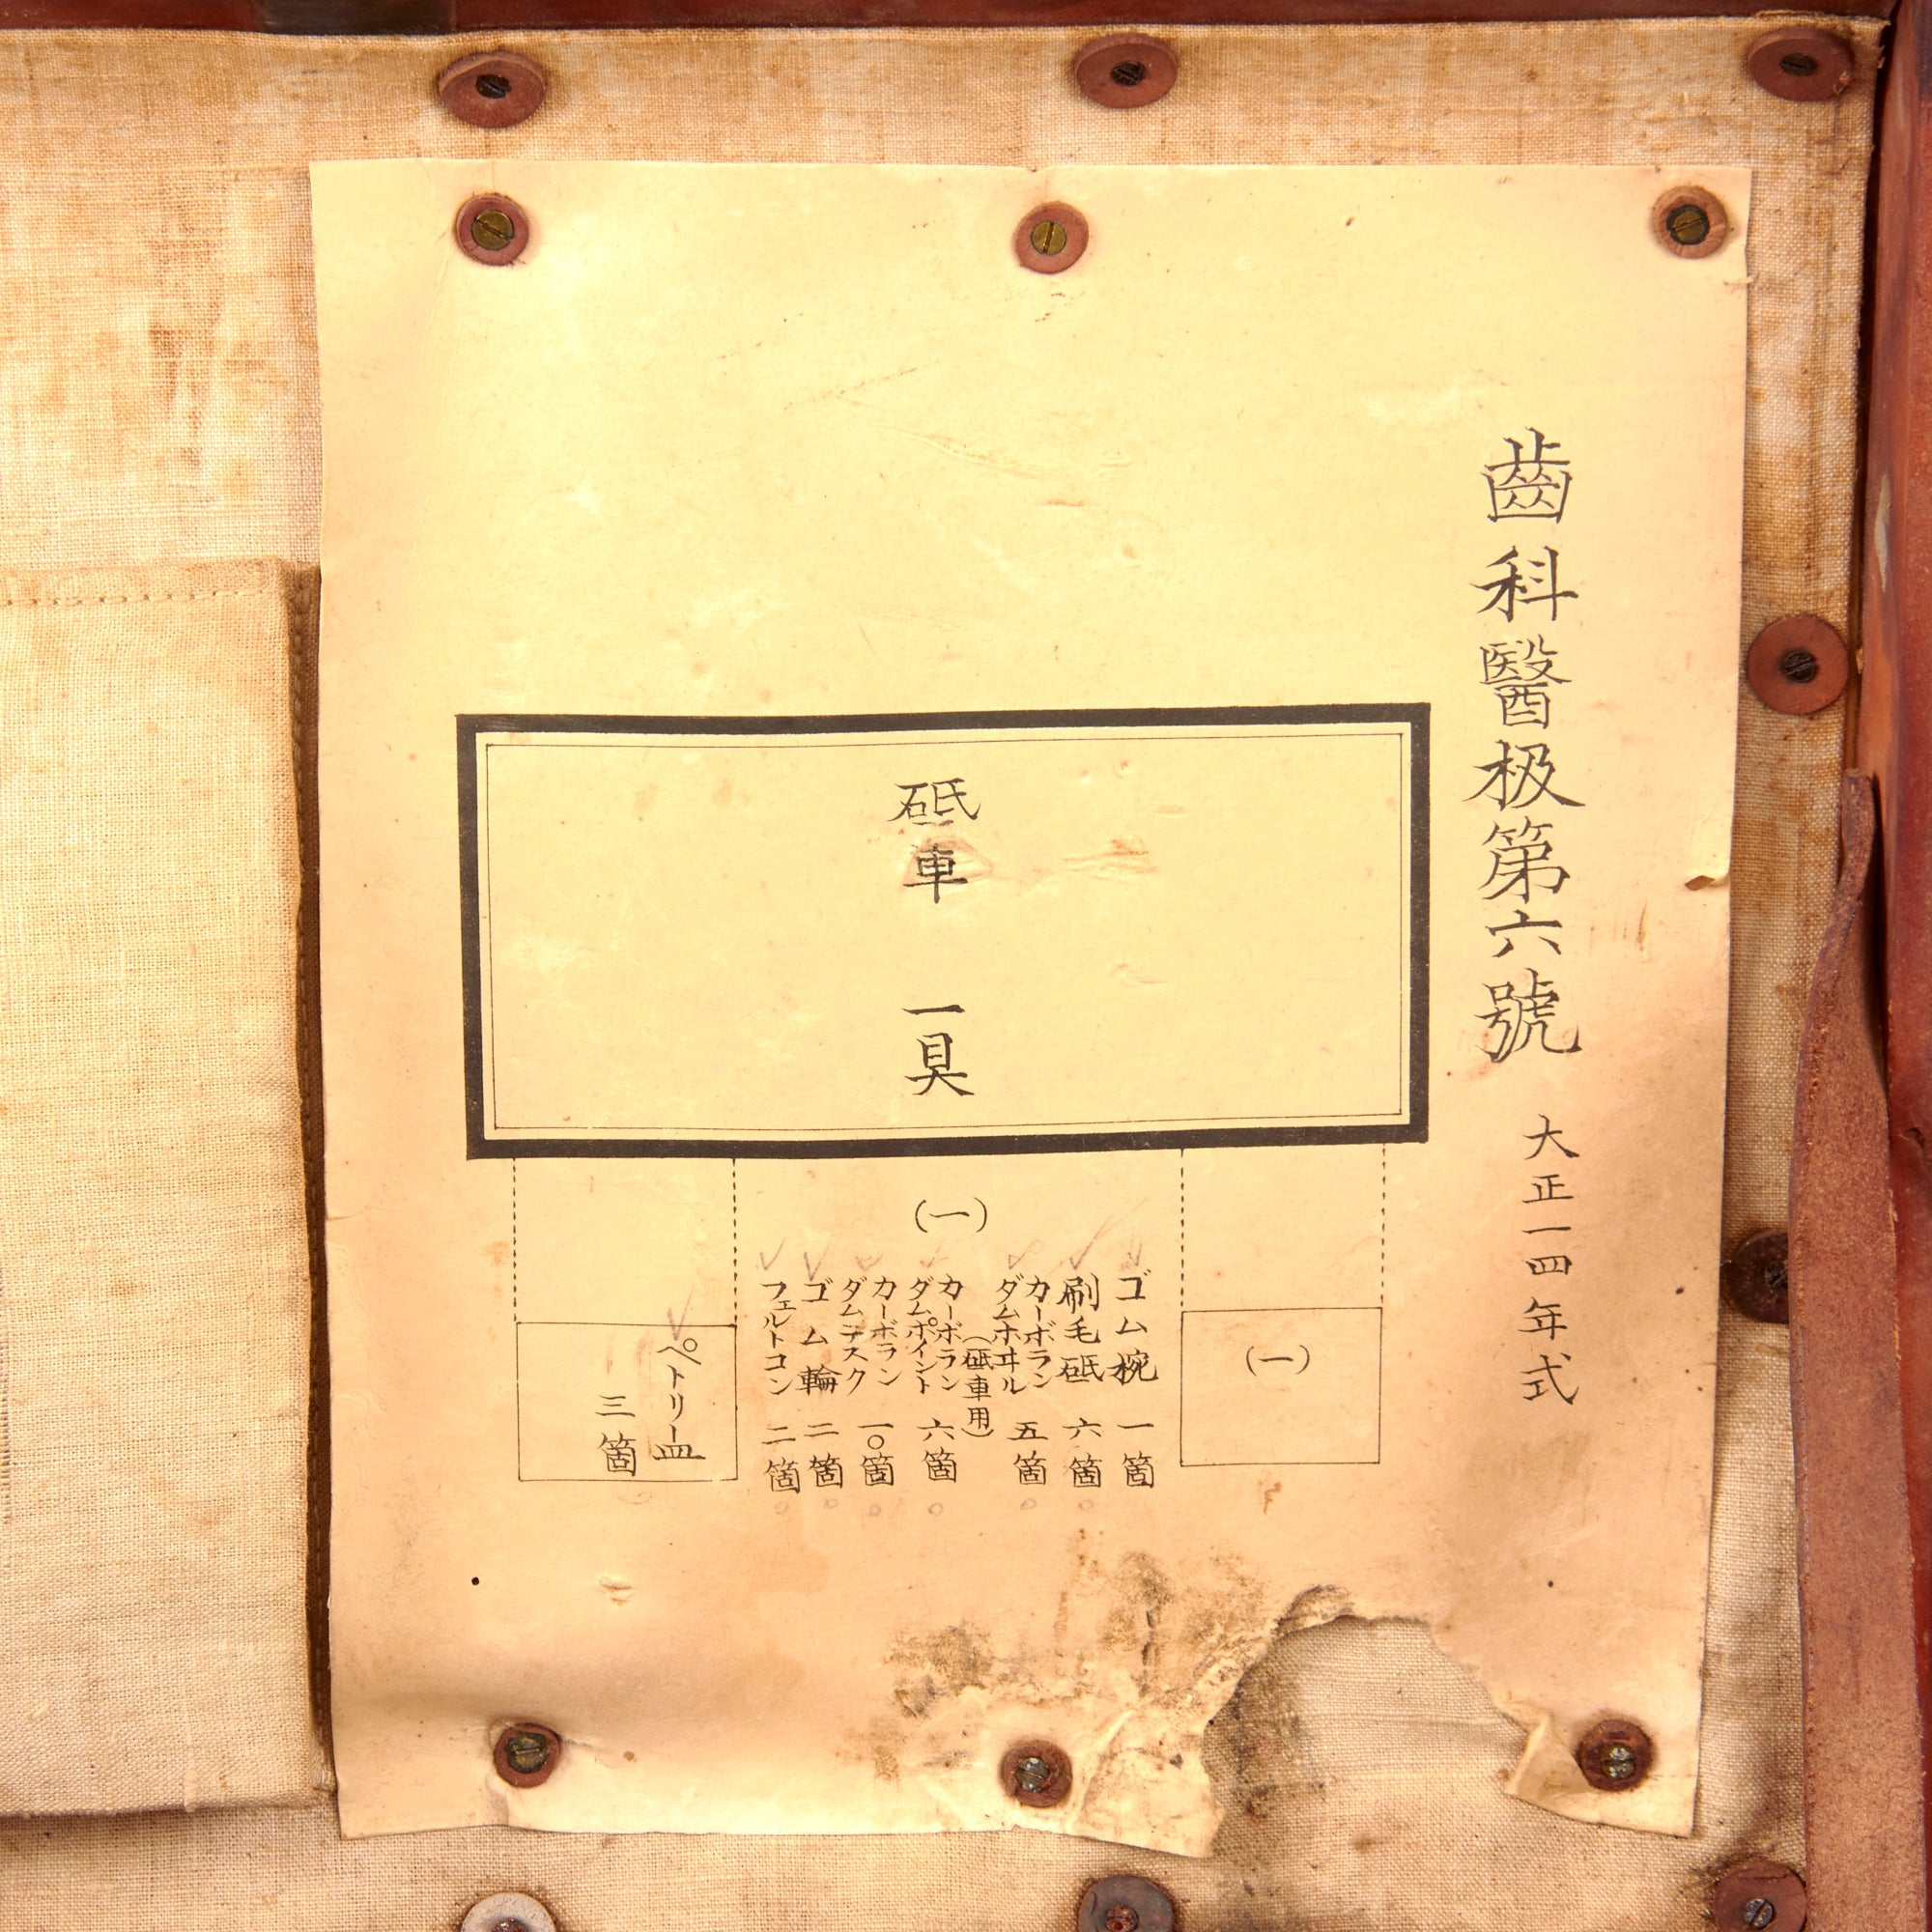 齒科醫极第六號 大正一四年式
砥車 一具
(一)
(一)
ゴム椀 一箇
刷毛砥 六箇
カーボラン
ダムホヰル 五箇
(砥車用)
カーボラン
ダムポイント 六箇
カーボラン
ダムデスク 一〇箇
ゴム輪 二箇
フェルトコン 二箇
ペトリー皿
三箇